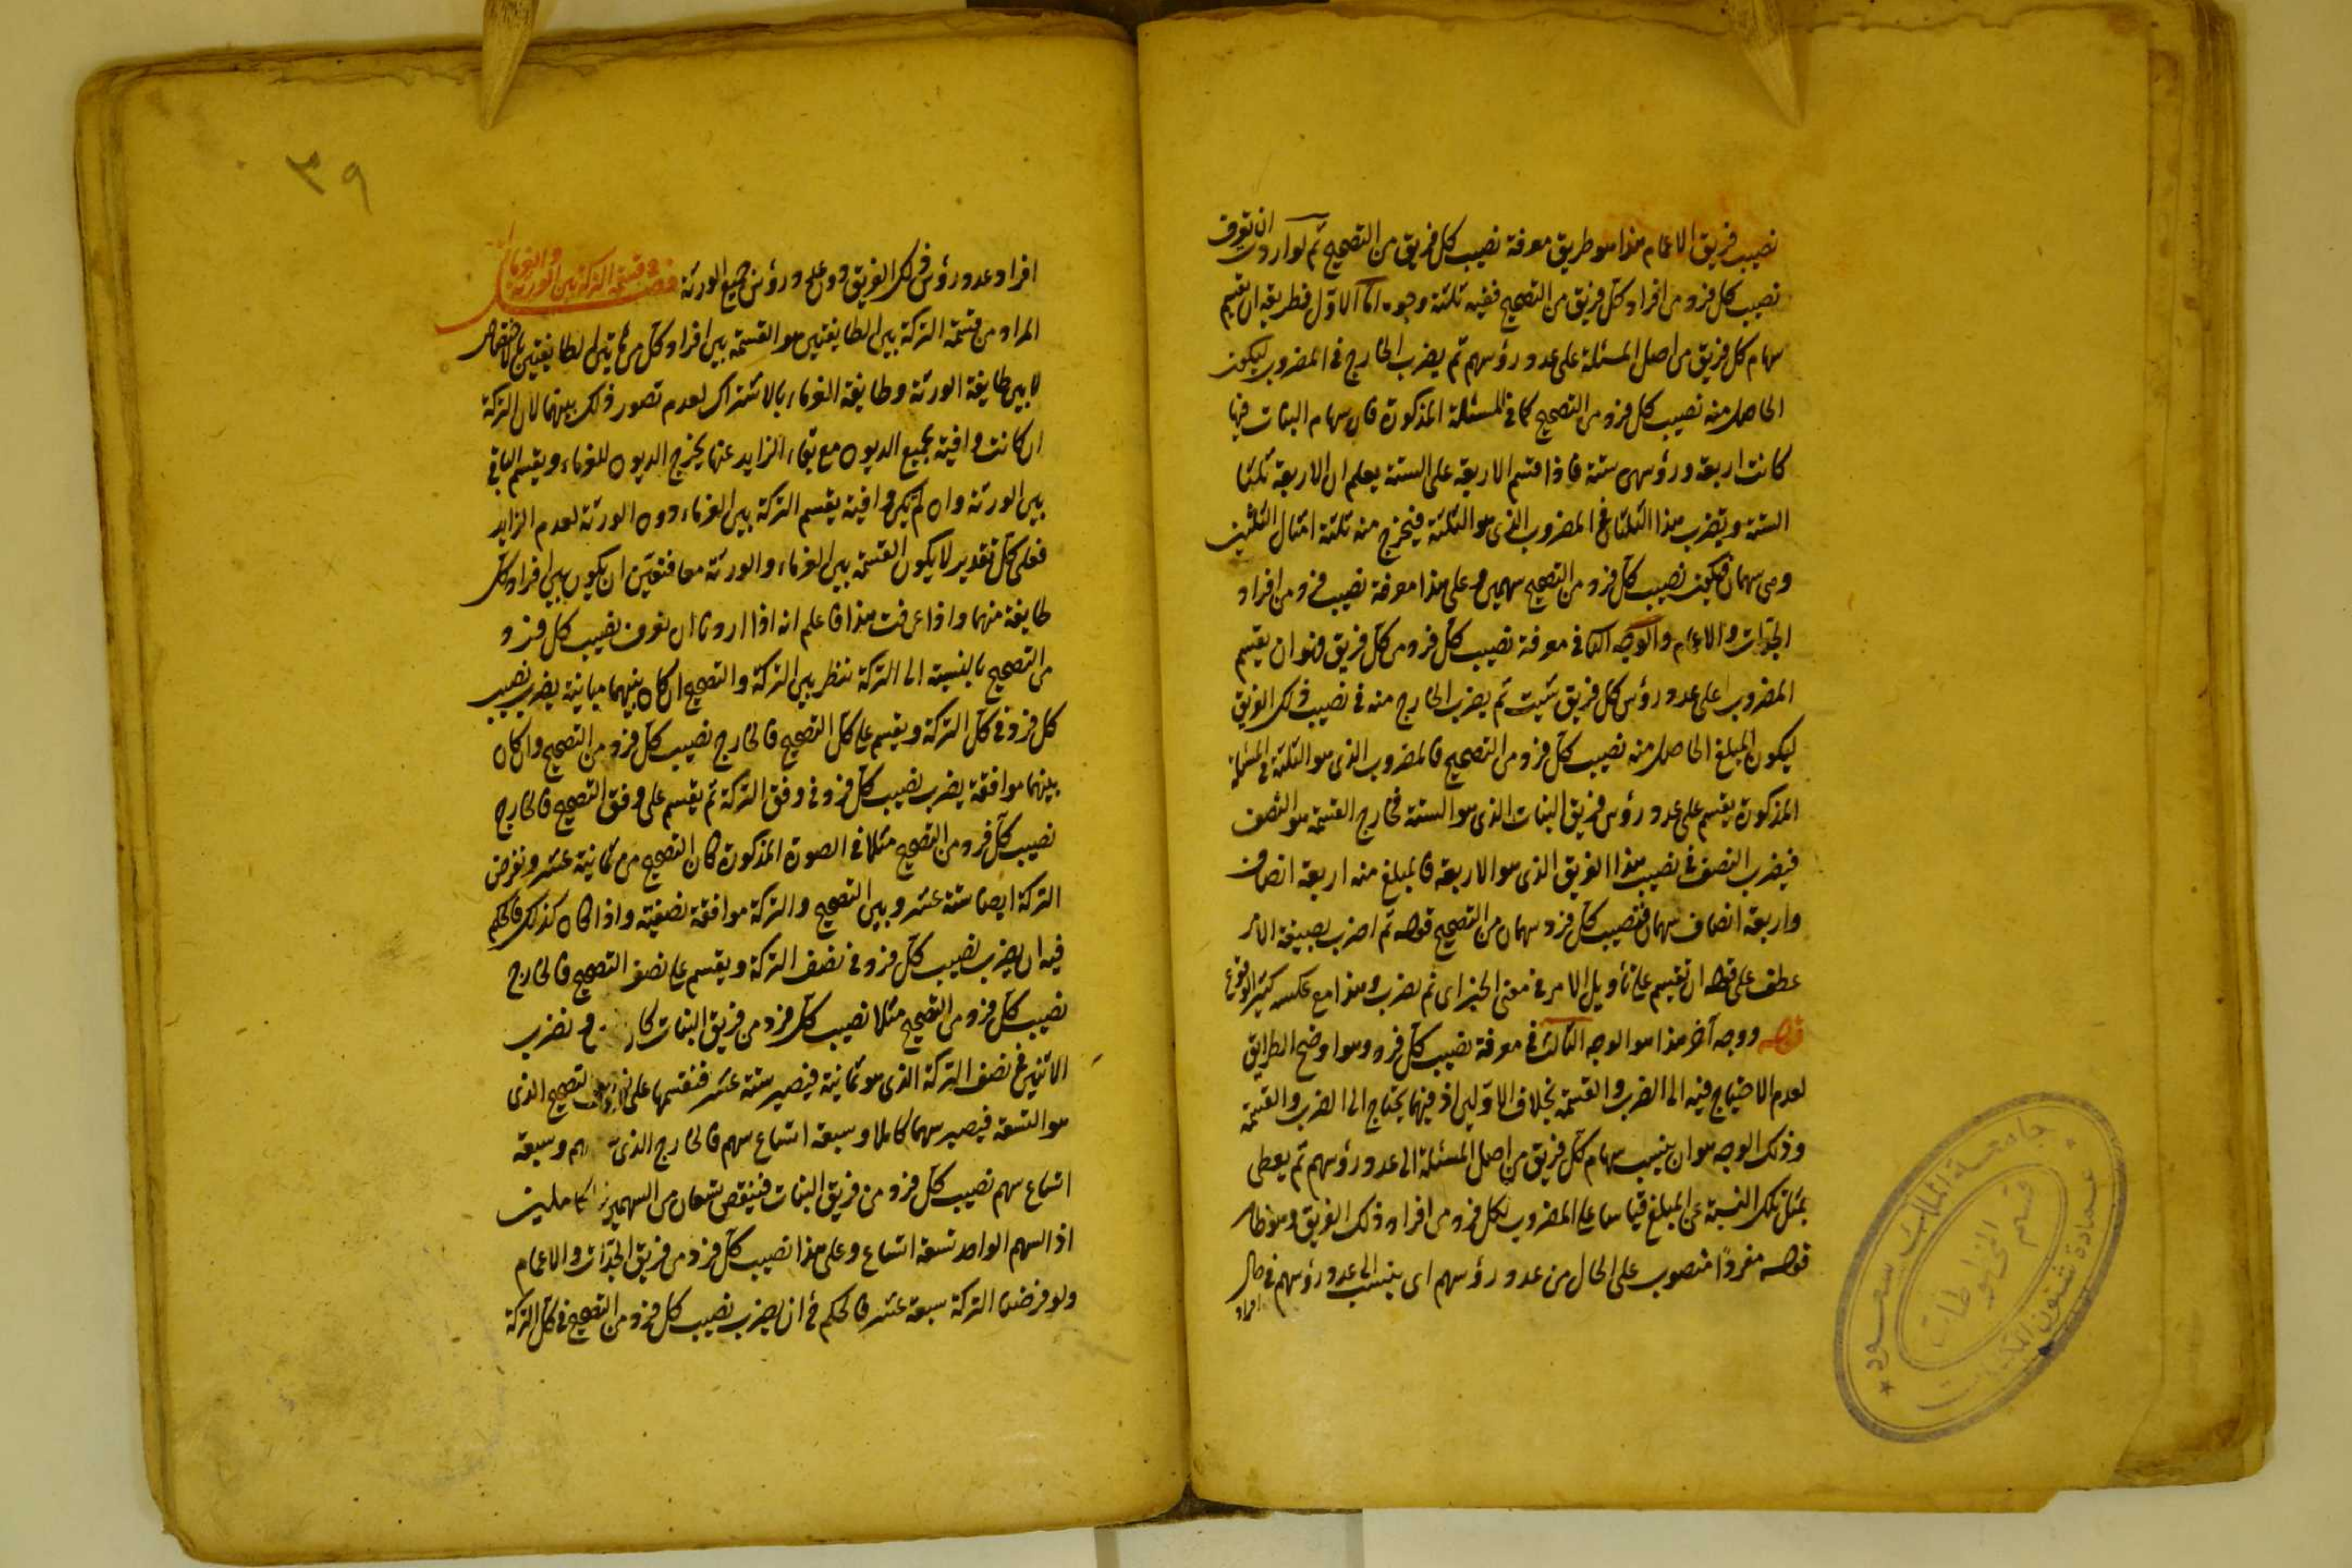 نصيب فريق الاعمام هذا هو طريق معرفة نصيب كل فريق من التصحيح ثم لو اردت ان تعرف
نصيب كل فرد من افراد كل فريق من التصحيح ففيه ثلثة وجوه اما الاول فطريقه ان تقسم
سهام كل فريق من اصل المسئلة على عدد رؤسهم ثم يضرب الخارج في المضروب ليكون
الحاصل منه نصيب كل فرد من التصحيح كما في المسئلة المذكورة فان سهام البنات فيها
كانت اربعة ورؤسهن ستة فاذا قسم الاربعة على الستة يعلم ان الاربعة ثلثا
الستة ويضرب هذا الثلثان في المضروب الذي هو الثلثة فيخرج منه ثلثة امثال الثلثين
وهي سهمان فيكون نصيب كل فرد من التصحيح سهمين وعلى هذا معرفة نصيب فرد من افراد
الجدات والاعمام والوجه الثاني في معرفة نصيب كل فرد من كل فريق فهو ان يقسم
المضروب على عدد رؤس كل فريق شئت ثم يضرب الخارج منه في نصيب ذلك الفريق
ليكون المبلغ الحاصل منه نصيب كل فرد من التصحيح فالمضروب الذي هو الثلثة في المسئلة
المذكورة يقسم على عدد رؤس فريق البنات الذي هو الستة فخارج القسمة هو النصف
فيضرب النصف في نصيب هذا الفريق الذي هو الاربعة فالمبلغ منه اربعة انصاف
واربعة انصاف سهمان فنصيب كل فرد سهمان من التصحيح قوله ثم اضرب بصيغة الامر
عطف على قوله ان تقسم على تأويل الامر في معنى الخبر اى ثم يضرب وهذا مع عكسه كثير الوقوع
قوله ووجه آخر هذا هو الوجه الثالث في معرفة نصيب كل فرد وهو اوضح الطرايق
لعدم الاحتياج فيه الى الضرب والقسمة بخلاف الاولين اذ فيهما يحتاج الى الضرب والقسمة
وذلك الوجه هو ان ينسب سهام كل فريق من اصل المسئلة الى عدد رؤسهم ثم يعطى
بمثل تلك النسبة عن المبلغ قياسا على المضروب لكل فرد من افراد ذلك الفريق وهو ظاهر
قوله مفردا منصوب على الحال من عدد رؤسهم اى ينسب الى عدد رؤسهم في حال
افراد
٣٩
افراد عدد رؤس ذلك الفريق دون عدد رؤس جميع الورثة فصل في قسمة التركة بين الورثة والغرماء
المراد من قسمة التركة بين الطايفتين هو القسمة بين افراد كل من هاتين الطايفتين
لا بين طايفة الورثة وطايفة الغرماء بالاشتراك لعدم تصور ذلك بينهما لان التركة
ان كانت وافية بجميع الديون مع بقاء الزايد عنها يخرج الديون للغرماء ويقسم الباقي
بين الورثة وان لم تكن وافية يقسم التركة بين الغرماء دون الورثة لعدم الزايد
فعلى كل تقدير لا يكون القسمة بين الغرماء والورثة معا فتعين ان يكون بين افراد كل
طايفة منهما واذا عرفت هذا فاعلم انه اذا اردنا ان نعرف نصيب كل فرد
من التصحيح بالنسبة الى التركة ننظر بين التركة والتصحيح ان كان بينهما مباينة يضرب نصيب
كل فرد في كل التركة ويقسم على كل التصحيح فالخارج نصيب كل فرد من التصحيح وان كان
بينهما موافقة يضرب نصيب كل فرد في وفق التركة ثم يقسم على وفق التصحيح فالخارج
نصيب كل فرد من التصحيح مثلا في الصورة المذكورة كان التصحيح من ثمانية عشر ونفرض
التركة ايضا ستة عشر وبين التصحيح والتركة موافقة نصفية واذا كان كذلك فالحكم
فيه ان يضرب نصيب كل فرد في نصف التركة ويقسم على نصف التصحيح فالخارج
نصيب كل فرد من التصحيح مثلا نصيب كل فرد من فريق البنات ونضرب
الاثنين في نصف التركة الذي هو ثمانية فيصير ستة عشر فنقسمها على التصحيح الذي
هو التسعة فيصير سهما كاملا وسبعة اتساع سهم فالخارج الذي وسبعة
اتساع سهم نصيب كل فرد من فريق البنات فينقص تسعان من السهمين الكاملين
اذ السهم الواحد تسعة اتساع وعلى هذا نصيب كل فرد من فريق الجدات والاعمام
ولو فرضنا التركة سبعة عشر فالحكم في ان يضرب نصيب كل فرد من التصحيح في كل التركة
جامعة الملك سعود
قسم المخطوطات
عمادة شئون المكتبات